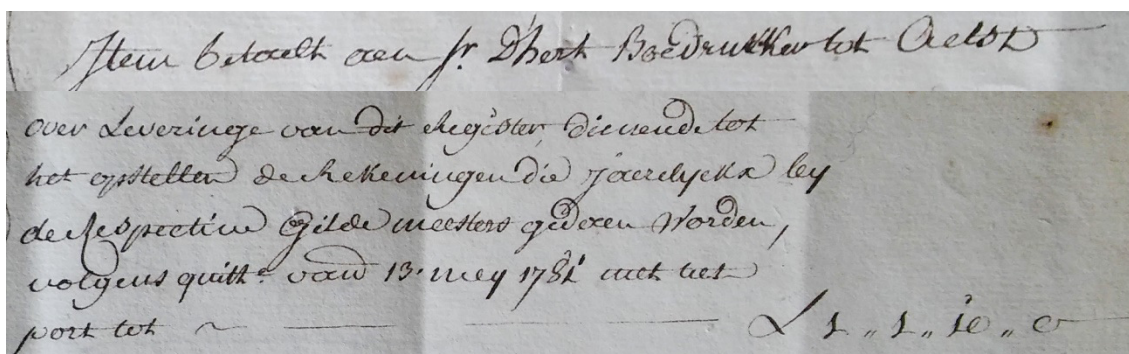 Item betaelt aen Sr. D'hert Boeđrukker tot Aelst
over Leveringe van dit Register, dienende tot
het opstellen de Rekeningen die jaerelyckx bey
de Respective Gilde meesters gedaen worden,
volgens quitte van 13. mey 1781 met het
port tot ~ L 1 ,, 1 ,, 10 ,, 0